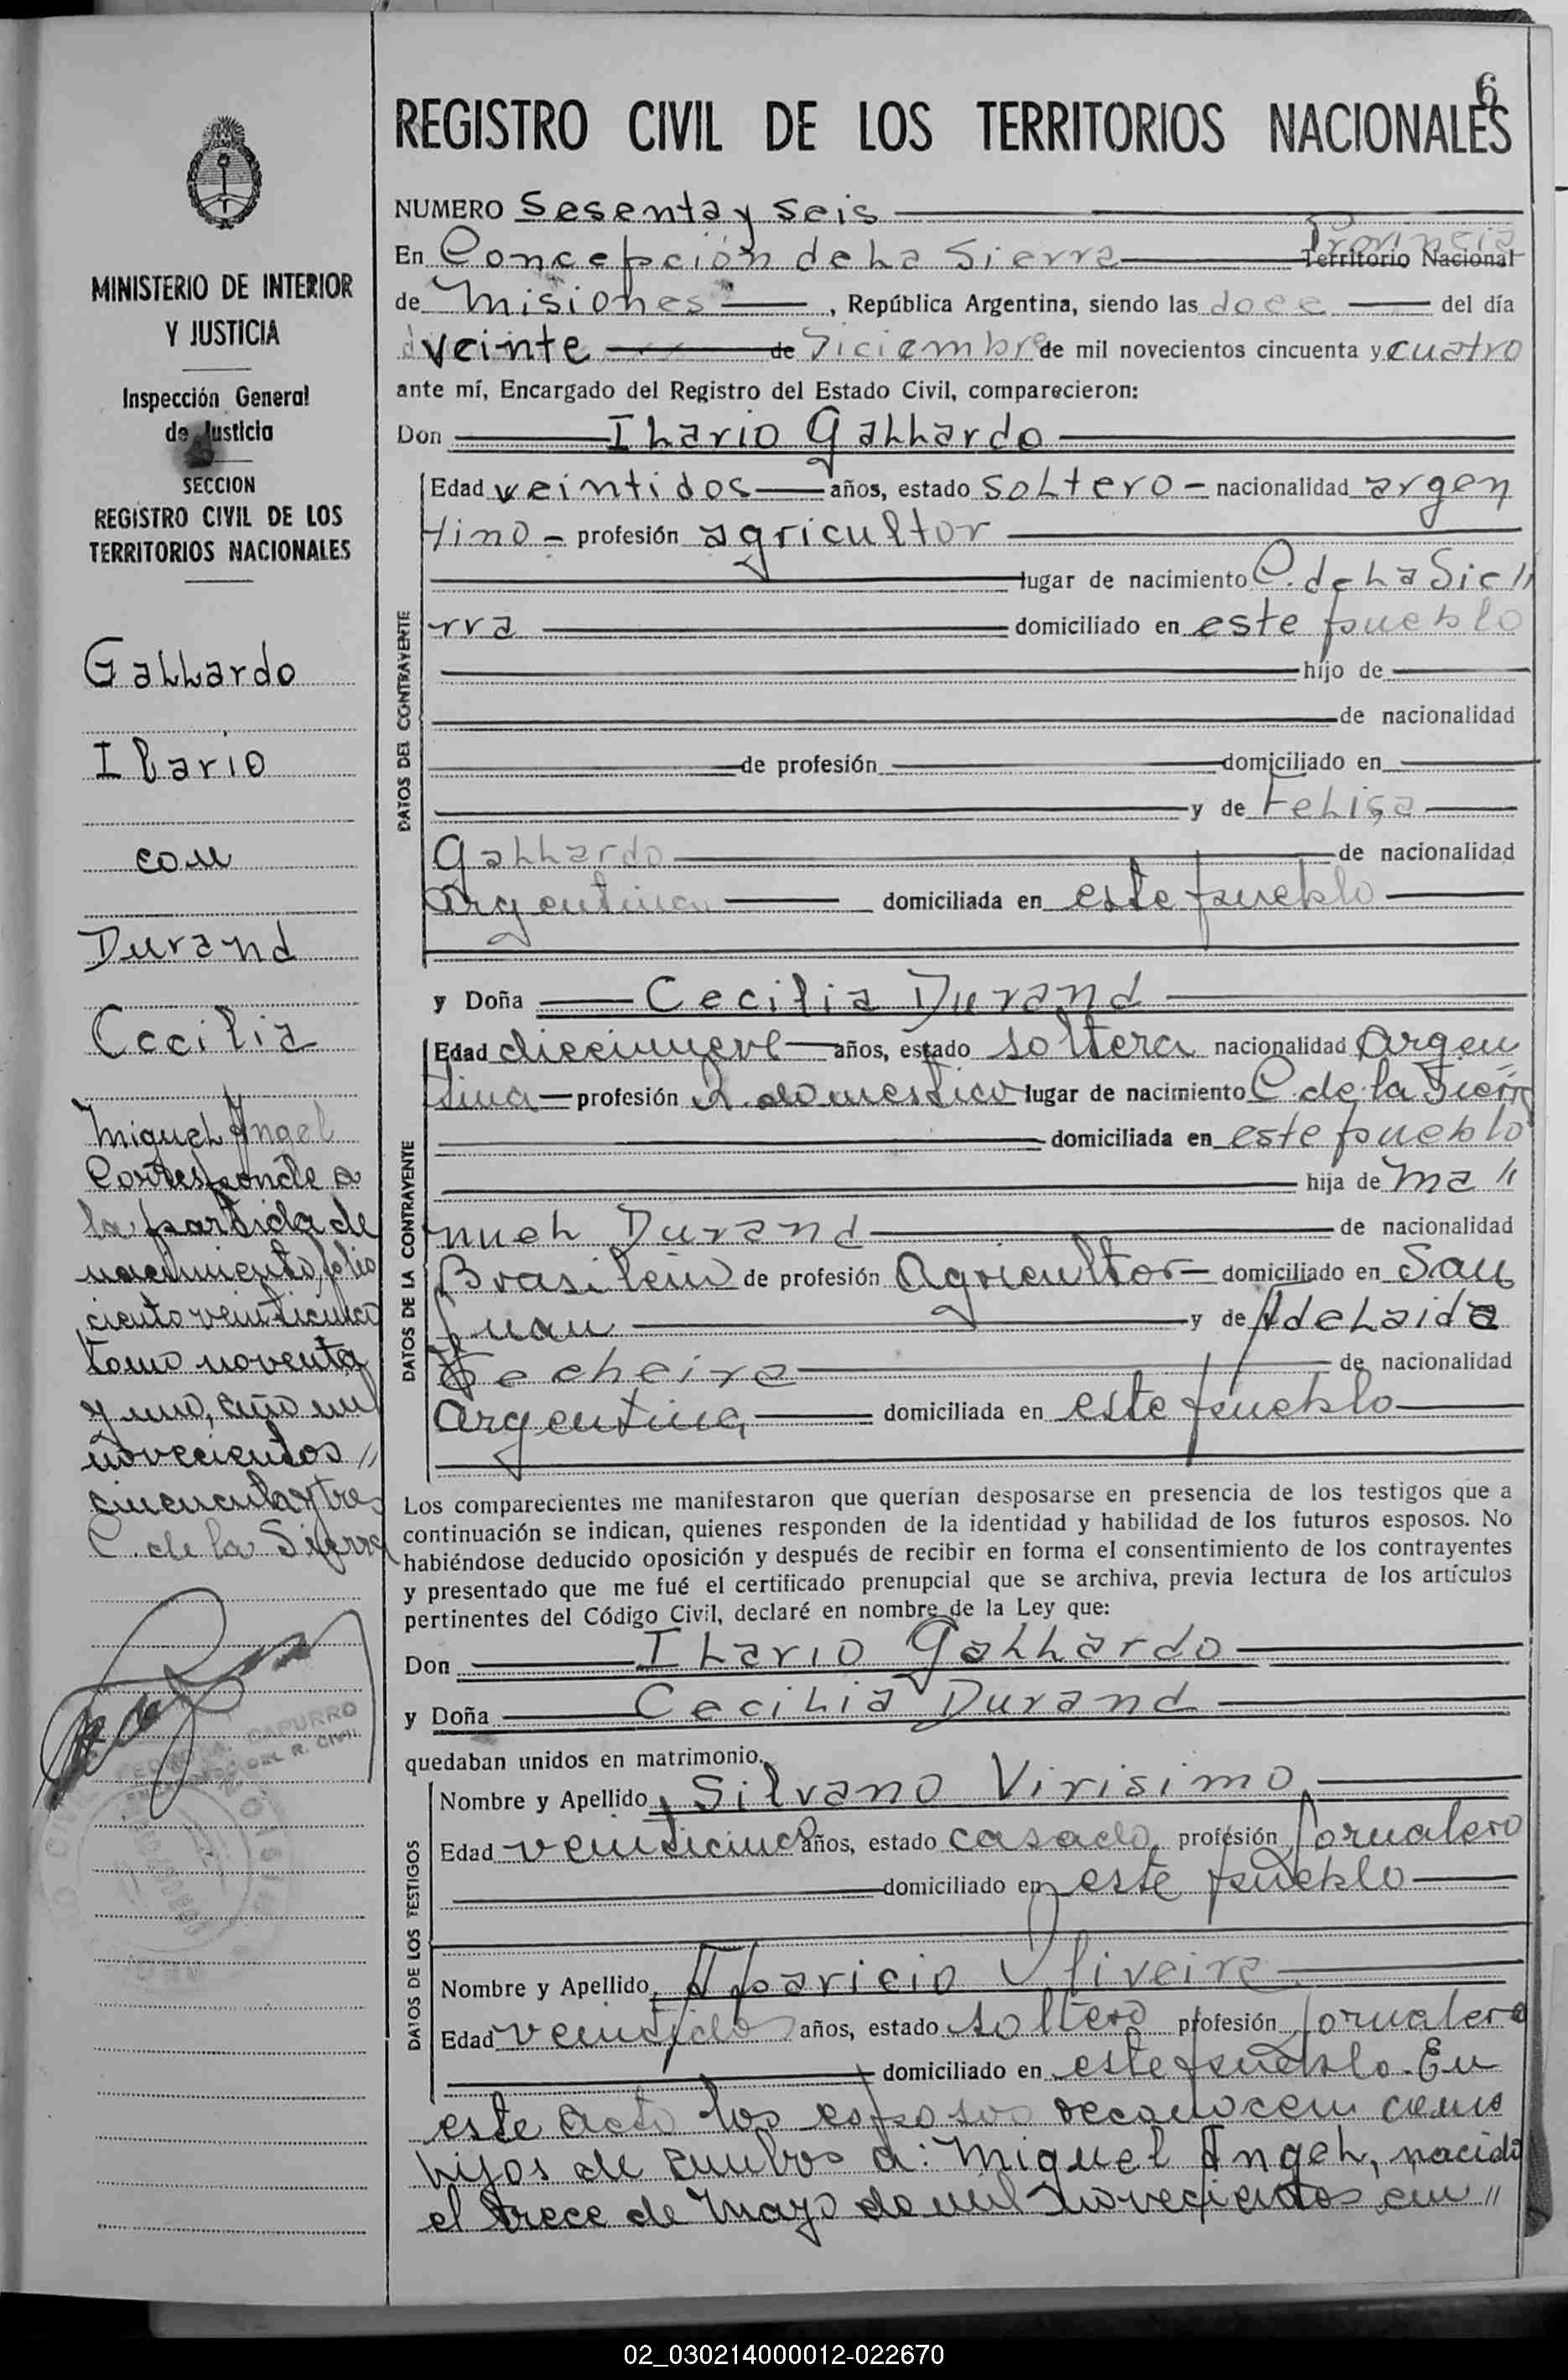 6
REGISTRO CIVIL DE LOS TERRITORIOS NACIONALES
MINISTERIO DE INTERIOR
Y JUSTICIA
Inspección General
de Justicia
SECCION
REGISTRO CIVIL DE LOS
TERRITORIOS NACIONALES
Gallardo
Ilario
con
Durand
Cecilia
Miguel Angel
Corresponde a
la partida de
nacimiento, folio
ciento veinticinco
tomo noventa
y uno, año mil
novecientos //
cincuenta y tres
C. de la Sierra
CAPURRO
DEL R. CIVIL
NUMERO Sesenta y seis
En Concepción de La Sierra Provincia Territorio Nacional
de Misiones, República Argentina, siendo las doce del día
veinte de Diciembre de mil novecientos cincuenta y cuatro
ante mí, Encargado del Registro del Estado Civil, comparecieron:
Don Ilario Gallardo
DATOS DEL CONTRAYENTE
Edad veintidos años, estado soltero - nacionalidad argen
tino - profesión agricultor
lugar de nacimiento C. de La Sie //
rra domiciliado en este pueblo
hijo de
de nacionalidad
de profesión domiciliado en
y de Felisa
Gallardo de nacionalidad
Argentina domiciliada en este pueblo
y Doña Cecilia Durand
DATOS DE LA CONTRAYENTE
Edad diecinueve años, estado soltera nacionalidad Argen
tina - profesión Q. domestico lugar de nacimiento C. de la Sierra
domiciliada en este pueblo
hija de Ma //
nuel Durand de nacionalidad
Brasilero de profesión Agricultor - domiciliado en San
Juan y de Adelaida
de nacionalidad
Argentina domiciliada en este pueblo
Los comparecientes me manifestaron que querían desposarse en presencia de los testigos que a
continuación se indican, quienes responden de la identidad y habilidad de los futuros esposos. No
habiéndose deducido oposición y después de recibir en forma el consentimiento de los contrayentes
y presentado que me fué el certificado prenupcial que se archiva, previa lectura de los artículos
pertinentes del Código Civil, declaré en nombre de la Ley que:
Don Ilario Gallardo
y Doña Cecilia Durand
quedaban unidos en matrimonio.
DATOS DE LOS TESTIGOS
Nombre y Apellido Silvano Virisimo
Edad veinticinco años, estado casado profesión Jornalero
domiciliado en este pueblo
Nombre y Apellido Aparicio Oliveira
Edad veintidos años, estado soltero profesión Jornalero
domiciliado en este pueblo. En
este acto los esposos reconocen como
hijos de ambos a: Miguel Angel, nacido
el trece de Mayo de mil novecientos cin //
02_030214000012-022670